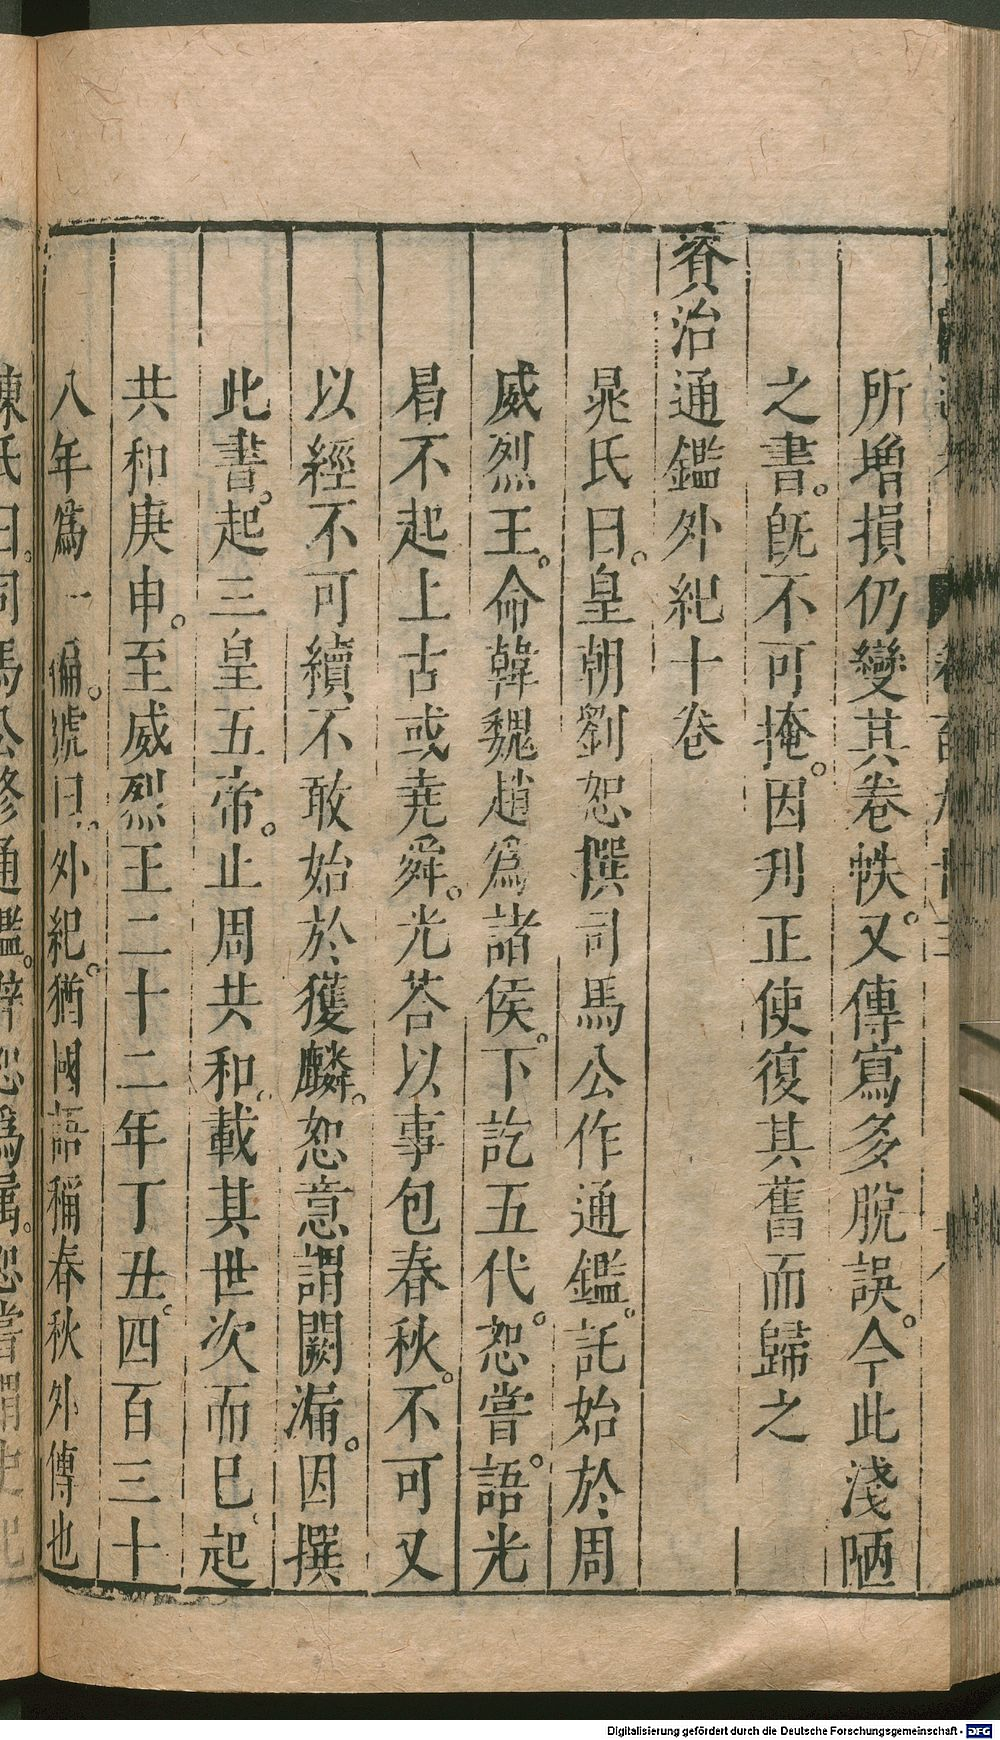 所增損仍變其卷帙。又傳寫多脫誤。今此淺陋
之書。旣不可掩。因刋正使復其舊而歸之
資治通鑑外紀十卷
晁氏曰。皇朝劉恕撰司馬公作通鑑。託始於周
威烈王。命韓魏趙爲諸侯。下訖五代。恕嘗。語光
曷不起上古或堯舜。光荅以事包春秋。不可又
以經不可續不敢始於獲麟。恕意謂闕漏。因撰
此書。起三皇五帝。止周共和。載其世次而已。起
共和庚申。至威烈王二十二年丁丑。四百三十
八年爲一編。號曰。外紀。猶國語稱春秋外傳也
陳氏曰。司馬公修通鑑。辟恕爲屬。恕嘗謂史記
Digitalisierung gefördert durch die Deutsche Forschungsgemeinschaft - DFG